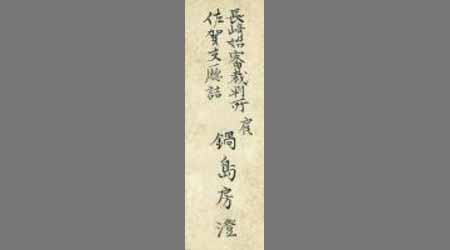 長崎始審裁判所
佐賀支廳詰
鍋島房澄